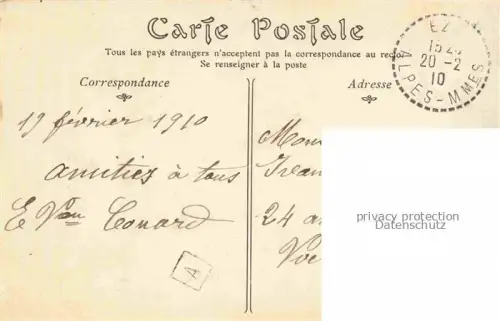 Carte Postale
Tous les pays étrangers n'acceptent pas la correspondance au recto
Se renseigner à la poste
Correspondance
Adresse
EZ
15
20 -2
10
ALPES-MMES
19 février 1910
amitiés à tous
E Conard
A
Mon
24
privacy protection
Datenschutz